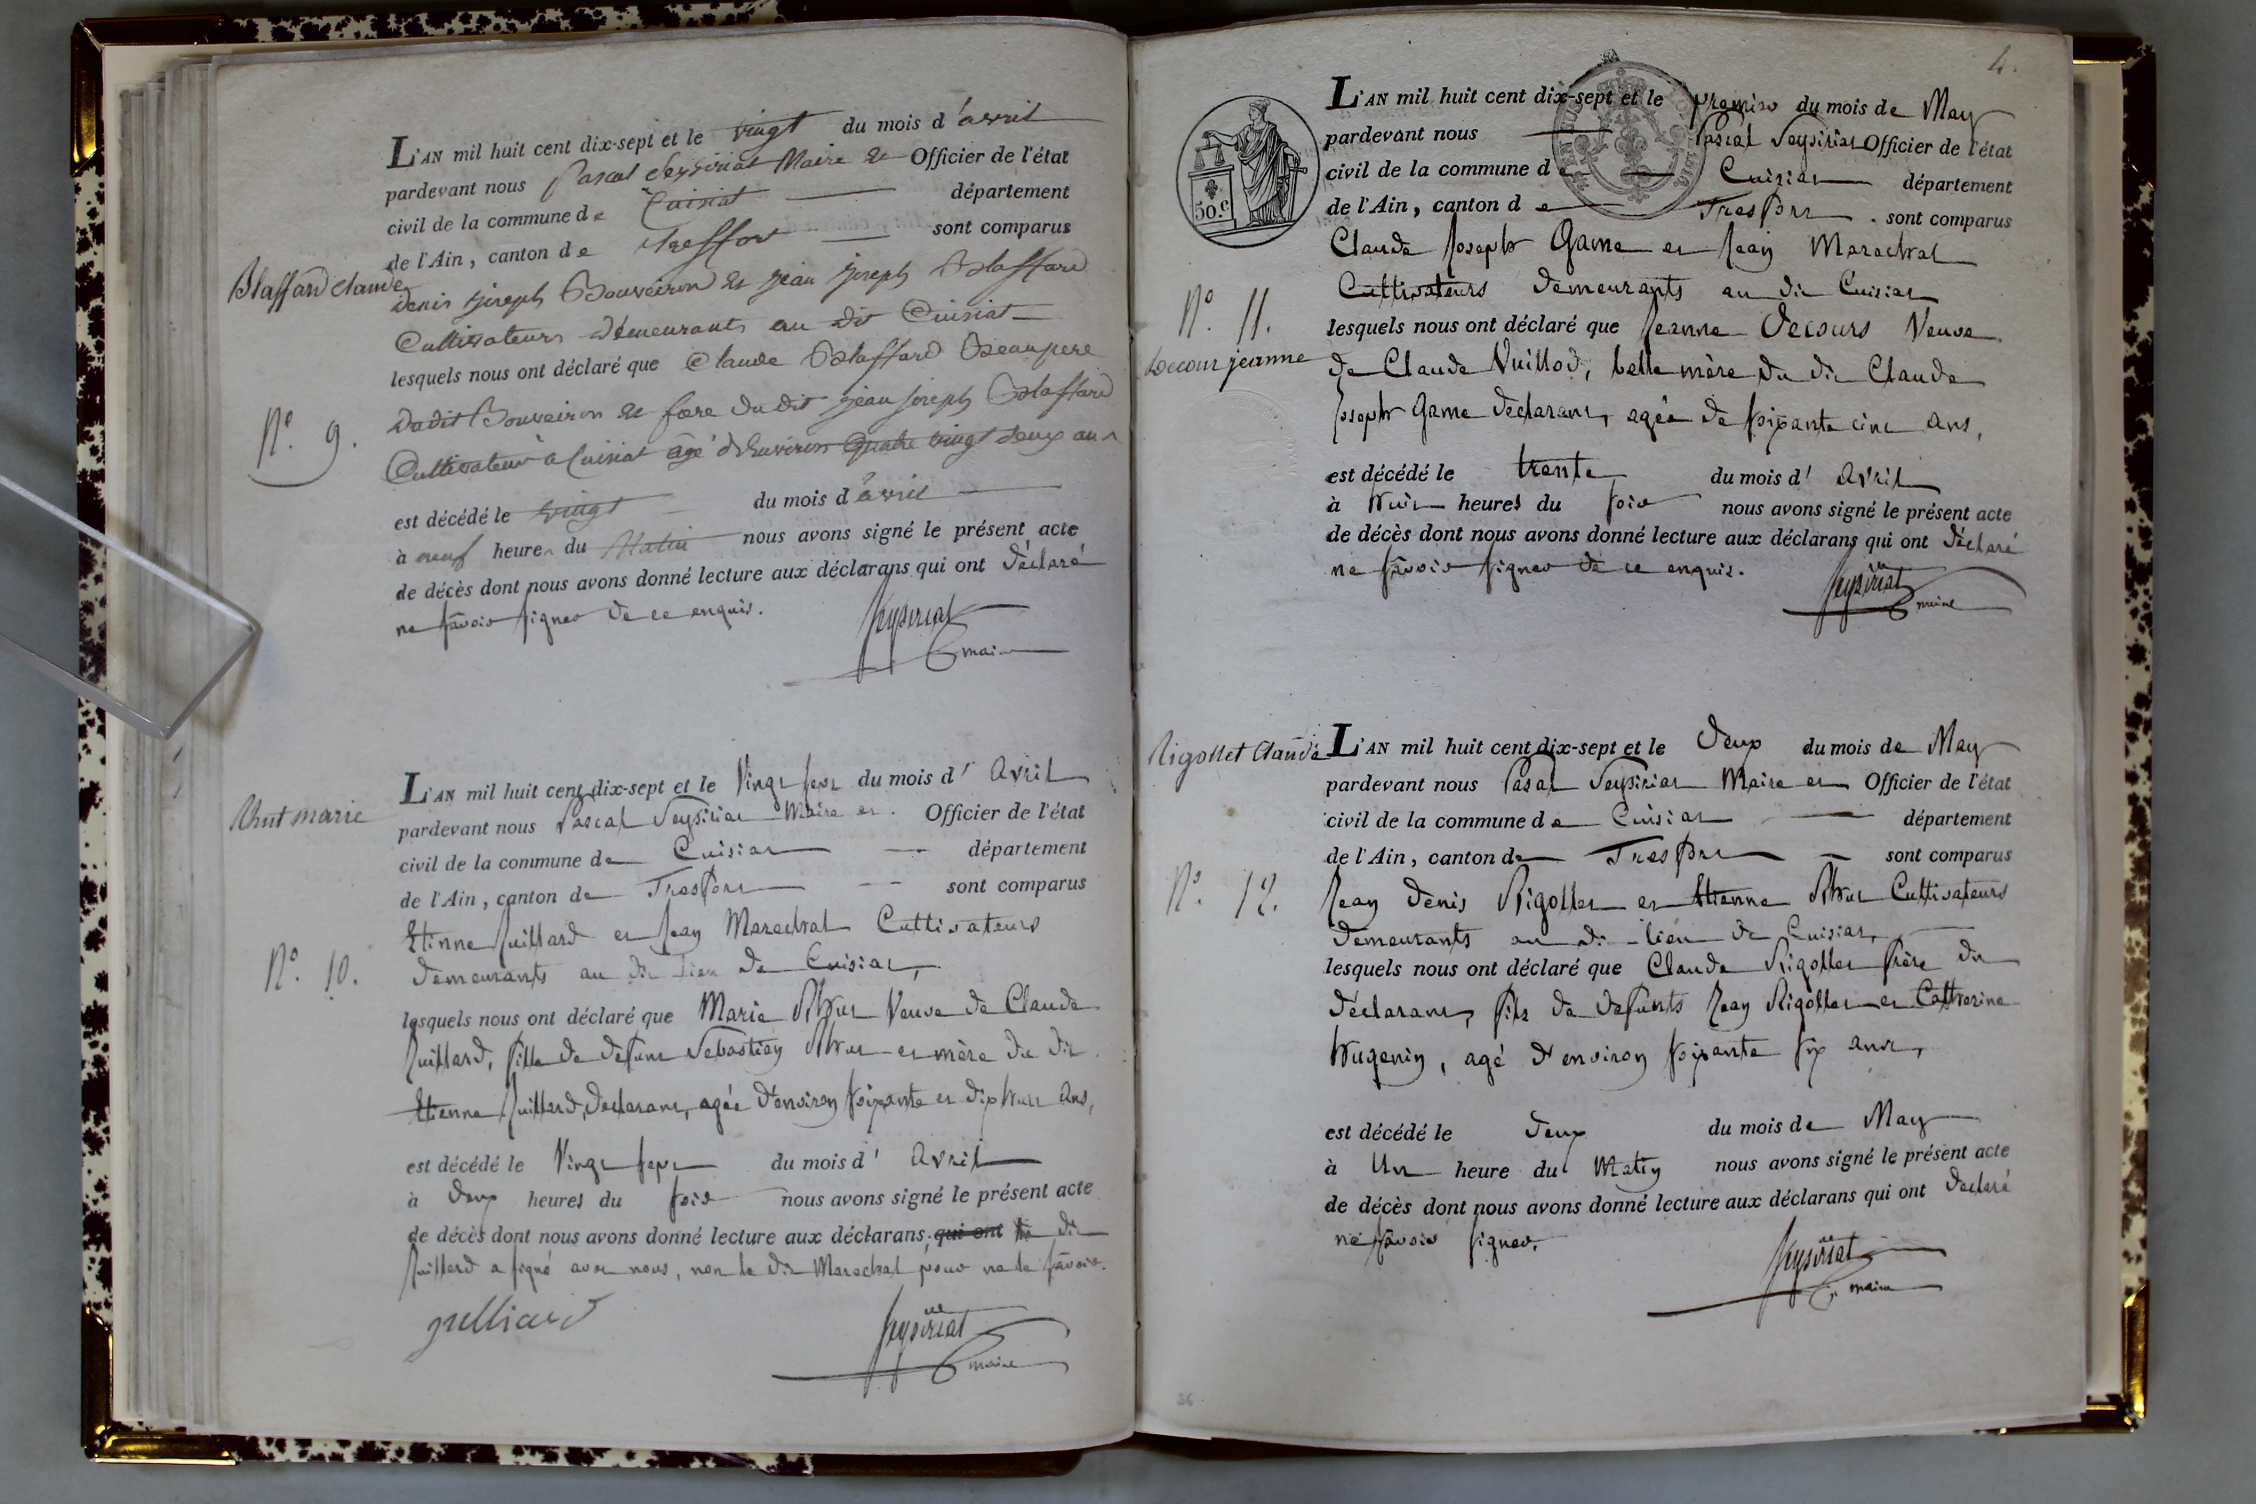 L'AN mil huit cent dix-sept et le vingt du mois d'avril
pardevant nous Pascal Seysiriat Maire et Officier de l'état
civil de la commune de Cuisiat département
de l'Ain, canton de Treffort sont comparus
Blaffard Claude
Denis Joseph Bouveiron et jean joseph Blaffard
Cultivateurs demeurants au dit Cuisiat
lesquels nous ont déclaré que Claude Blaffard Beaupere
N.º 9.
Dudit Bouveiron et frere du dit jean joseph Blaffard
Cultivateur à Cuisiat agé d'Environ Quatre vingt deux ans
est décédé le vingt du mois d'avril
à neuf heures du Matin nous avons signé le présent acte
de décès dont nous avons donné lecture aux déclarans qui ont déclaré
ne savoir signer de ce enquis.
Seysiriat
maire
L'AN mil huit cent dix-sept et le Vingt sept du mois d' Avril
Rhut marie
pardevant nous Pascal Seysiriat Maire et Officier de l'état
civil de la commune de Cuisiat département
de l'Ain, canton de Treffort sont comparus
Etienne Juillard et Jean Marechal Cultivateurs
N.º 10.
demeurants au dit lieu de Cuisiat,
lesquels nous ont déclaré que Marie Rhut Veuve de Claude
Juillard, fille de defunt Sebastien Rhut et mère du dit
Etienne Juillard, declarant, agée d'environ soixante et dix huit ans,
est décédé le Vingt sept du mois d' Avril
à deux heures du soir nous avons signé le présent acte
de décès dont nous avons donné lecture aux déclarans qui ont le dit
Juillard a signé avec nous, non le dit Marechal pour ne le savoir.
juilliard
Seysiriat
maire
4.
L'AN mil huit cent dix-sept et le premier du mois de May
pardevant nous Pascal Seysiriat Officier de l'état
civil de la commune de Cuisiat département
50.c
de l'Ain, canton de Treffort sont comparus
Claude Joseph Game et Jean Marechal
Cultivateurs demeurants au dit Cuisiat
N.º 11.
lesquels nous ont déclaré que Jeanne Decours Veuve
Decour jeanne
de Claude Vuillod, belle mère du dit Claude
Joseph Game declarant, agée de soixante cinc ans,
est décédé le trente du mois d' Avril
à huit heures du soir nous avons signé le présent acte
de décès dont nous avons donné lecture aux déclarans qui ont déclaré
ne savoir signer de ce enquis.
Seysiriat
maire
Rigollet Claude
L'AN mil huit cent dix-sept et le deux du mois de May
pardevant nous Pascal Seysiriat Maire et Officier de l'état
civil de la commune de Cuisiat département
de l'Ain, canton de Treffort sont comparus
N.º 12.
Jean Denis Rigollet et Etienne Rhut Cultivateurs
demeurants au dit lieu de Cuisiat,
lesquels nous ont déclaré que Claude Rigollet frère du
déclarant, fils de defunts Jean Rigollet et Catherine
hugenin, agé d'environ soixante six ans,
est décédé le deux du mois de May
à Un heure du Matin nous avons signé le présent acte
de décès dont nous avons donné lecture aux déclarans qui ont declaré
ne savoir signer.
Seysiriat
maire